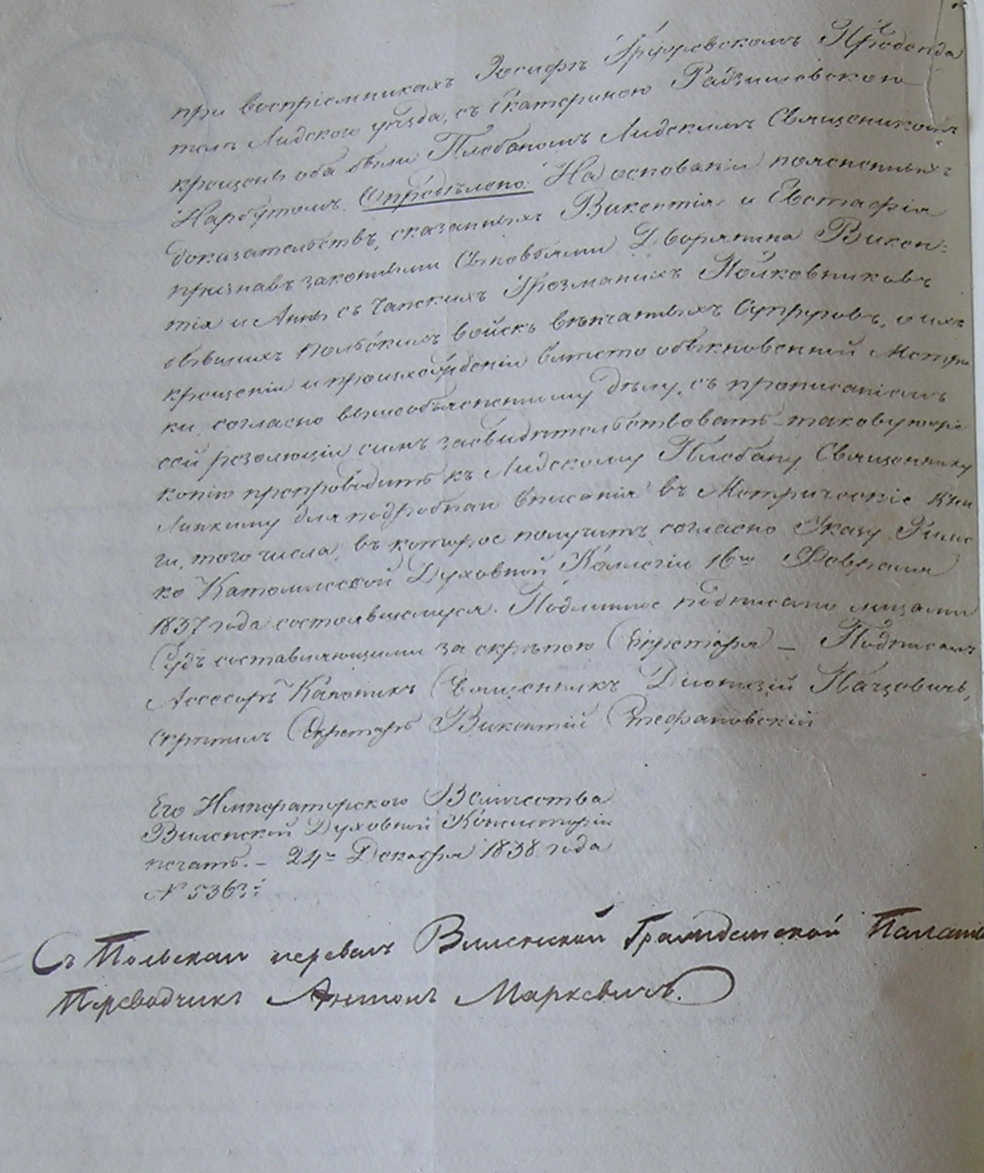 при воспріемникахъ Іосифѣ Гружевскомъ
телѣ Лидского уѣзда, съ Екатериною Радзишевскою
крещены оба были Плебаномъ Лидскимъ Священикомъ
Нарбутомъ. Опредѣлено: На основаніи поясненныхъ
доказательствъ, сказанныхъ Викентія и Евстафія
признавъ законными сыновьями Дворянина Викен=
тія и Анны съ Чапскихъ Грозманихъ Полковниковъ
бывшихъ Польскихъ войскъ вѣнчанныхъ Супруговъ, о ихъ
крещеніи и происхожденіи вмѣсто обыкновенной Метри
ки, согласно вышеобъясненному дѣлу, съ прописаніемъ
сей резолюціи симъ засвидѣтельствовать таковую же
копію препроводить къ Лидскому Плебану Священнику
для подробнаго вписанія въ Метрическіе Кни
ги, того числа, въ которое получитъ, согласно Указу Римс
ко Католической Духовной Коллегіи 16го Февраля
1837 года состоявшемуся. Подлинное подписано лицами
Судъ составляющими за скрѣпою Секретаря — Подписалъ
Асесоръ Каноникъ Священникъ Діонизій Пацовичъ,
скрѣпилъ Секретарь Викентій Стефановскій
Его Императорского Величества
Виленской Духовной Консисторіи
печать. — 24го Декабря 1838 года
№ 5363й
Съ Польскаго перевелъ Виленской Гражданской Палаты
Переводчикъ Антонъ Маркевичъ.